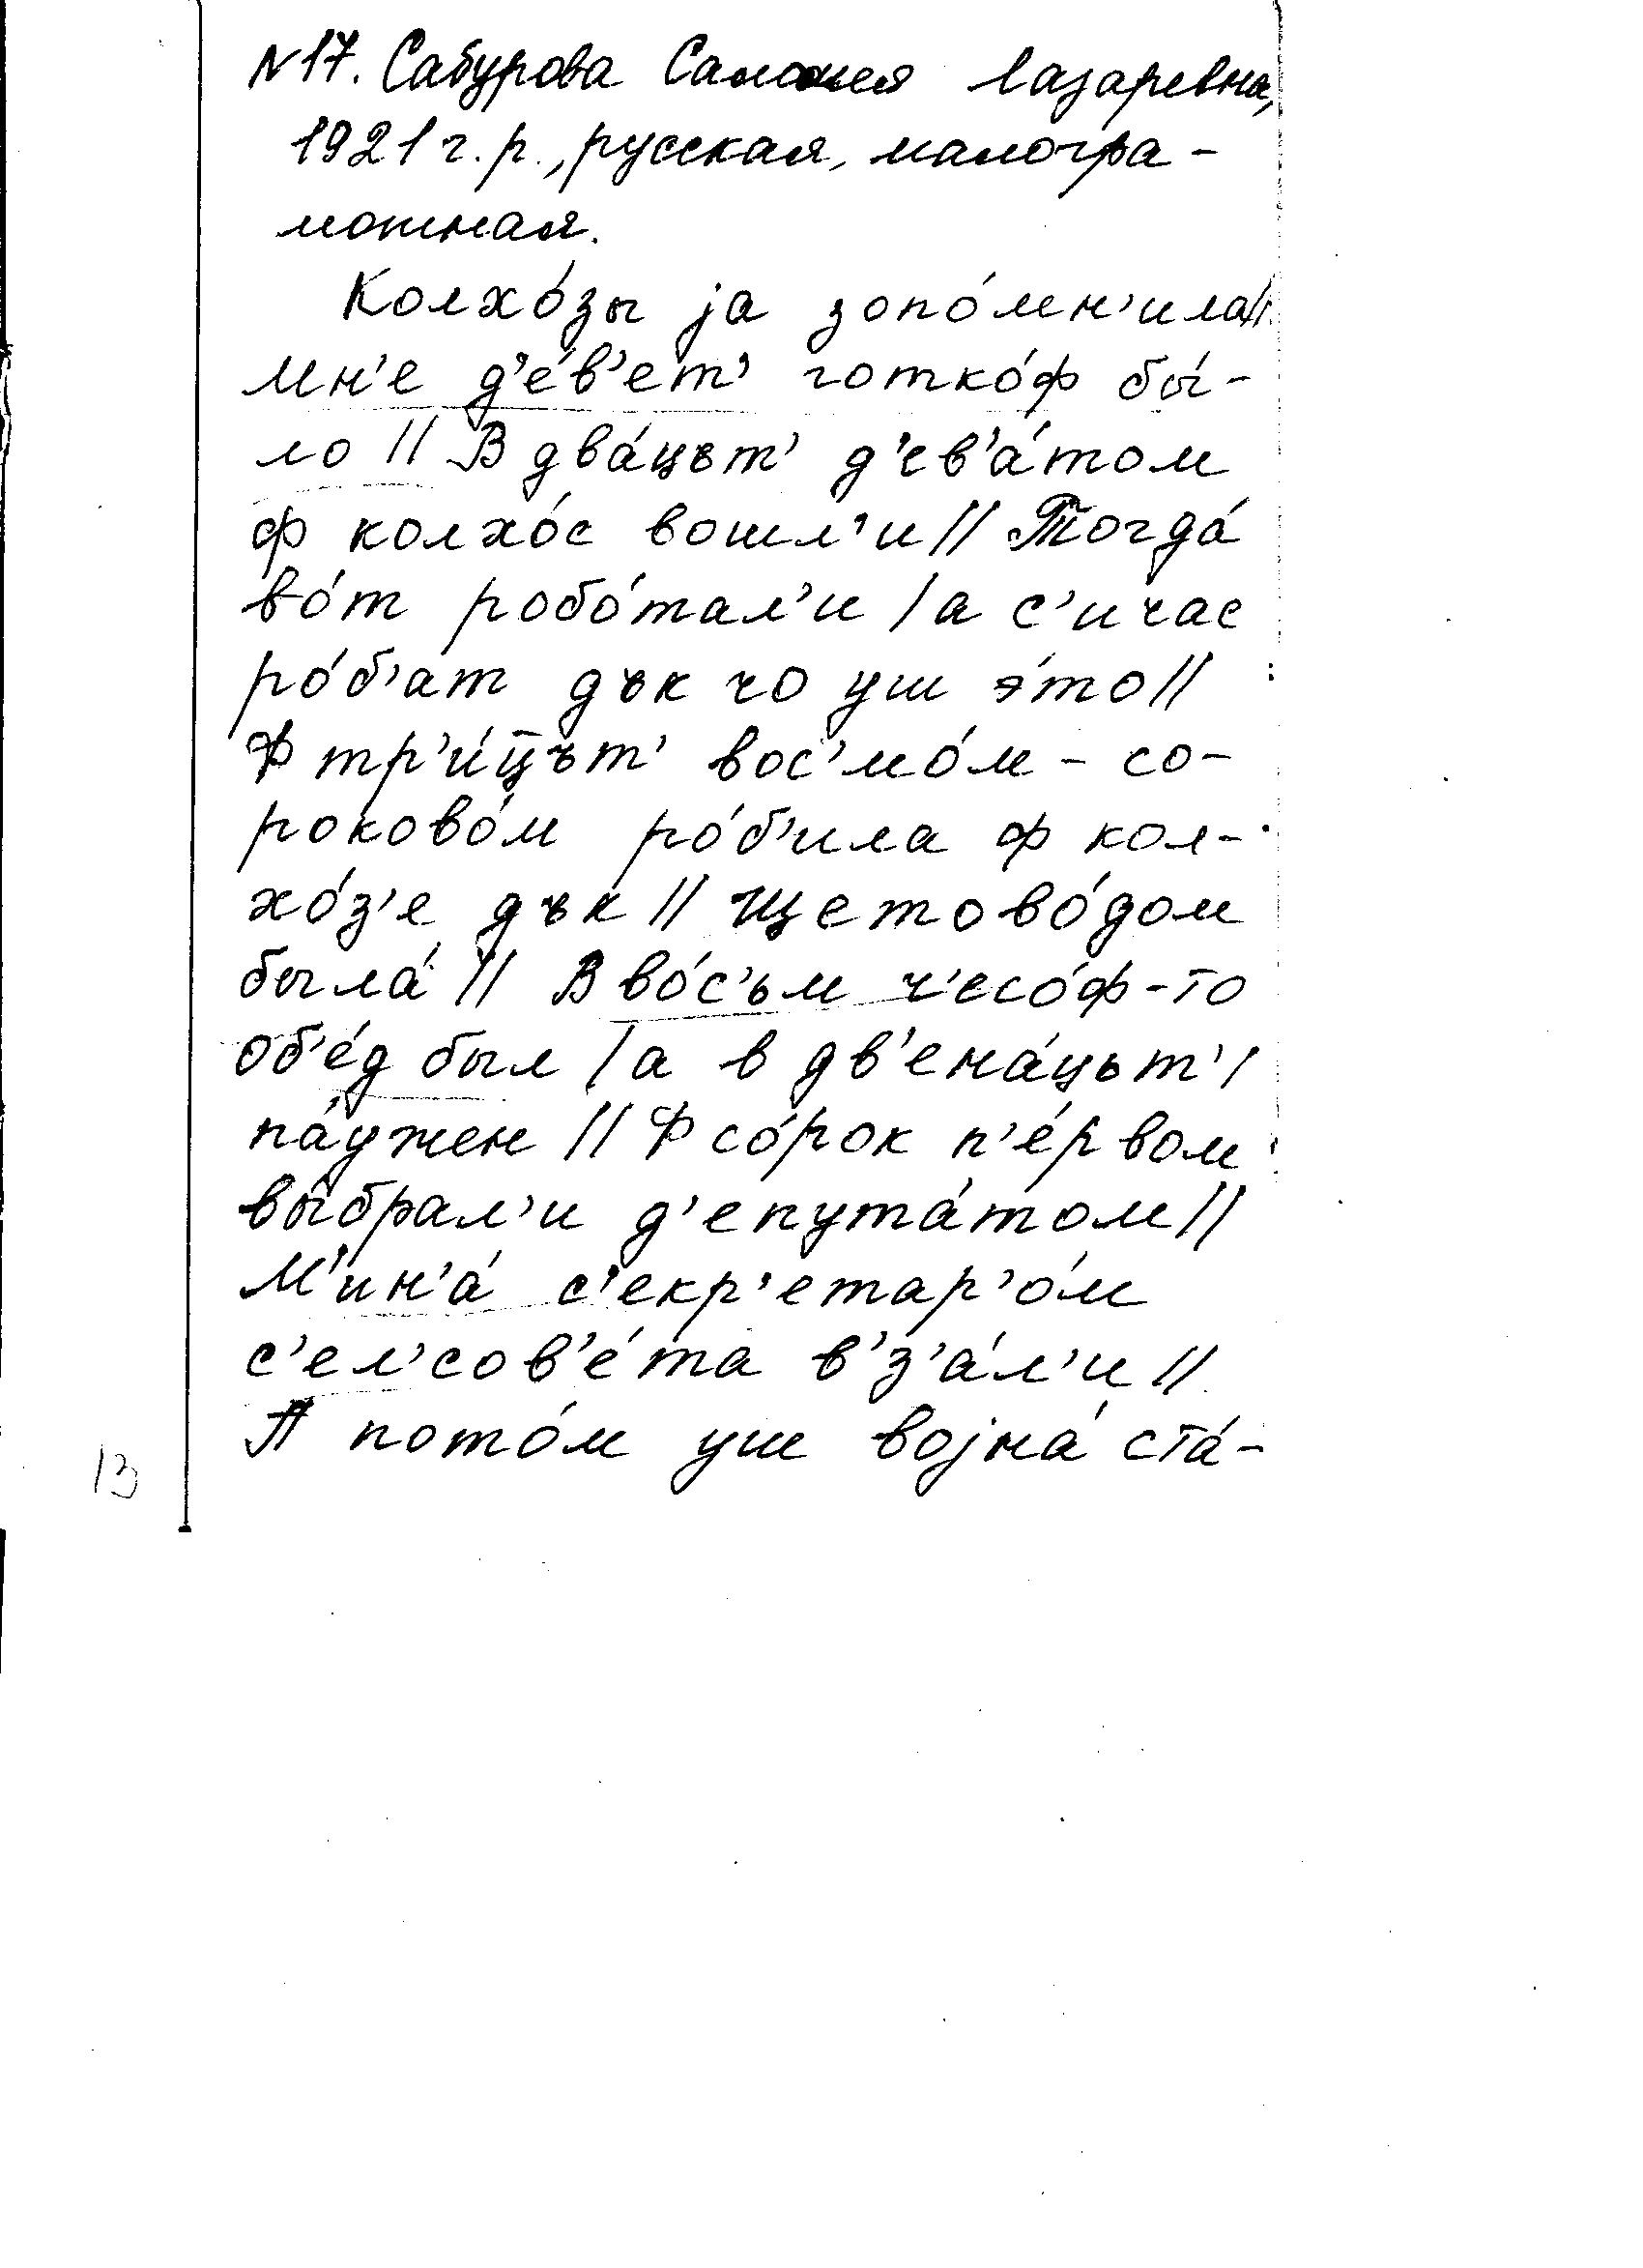 N 17. Сабурова Саломея Лазаревна,
1921 г. р., русская, малогра-
мотная.
Колхо́зы ја зопо́мн'ила//
мн'е д'е́в'ет' готко́ф бы́-
ло // В два́цът' д'ев'а́том
ф колхо́с вошл'и // Тогда́
во́т робо́тал'и / а с'ичас
ро́б'ат дък чо уш э́то //
Ф тр'и́цът' вос'мо́м - со-
роково́м ро́б'ила ф кол-
хо́з'е дък // Щетово́дом
была́ // В во́с'ьм ч'есо́ф-то
об'е́д был / а в дв'ена́цьт' /
па́ужен // Ф со́рок п'е́рвом
вы́брал'и д'епута́том //
М'ин'а́ с'екр'етар'о́м
с'ел'сов'е́та в'з'а́л'и //
А пото́м уш војна́ ста́-
13